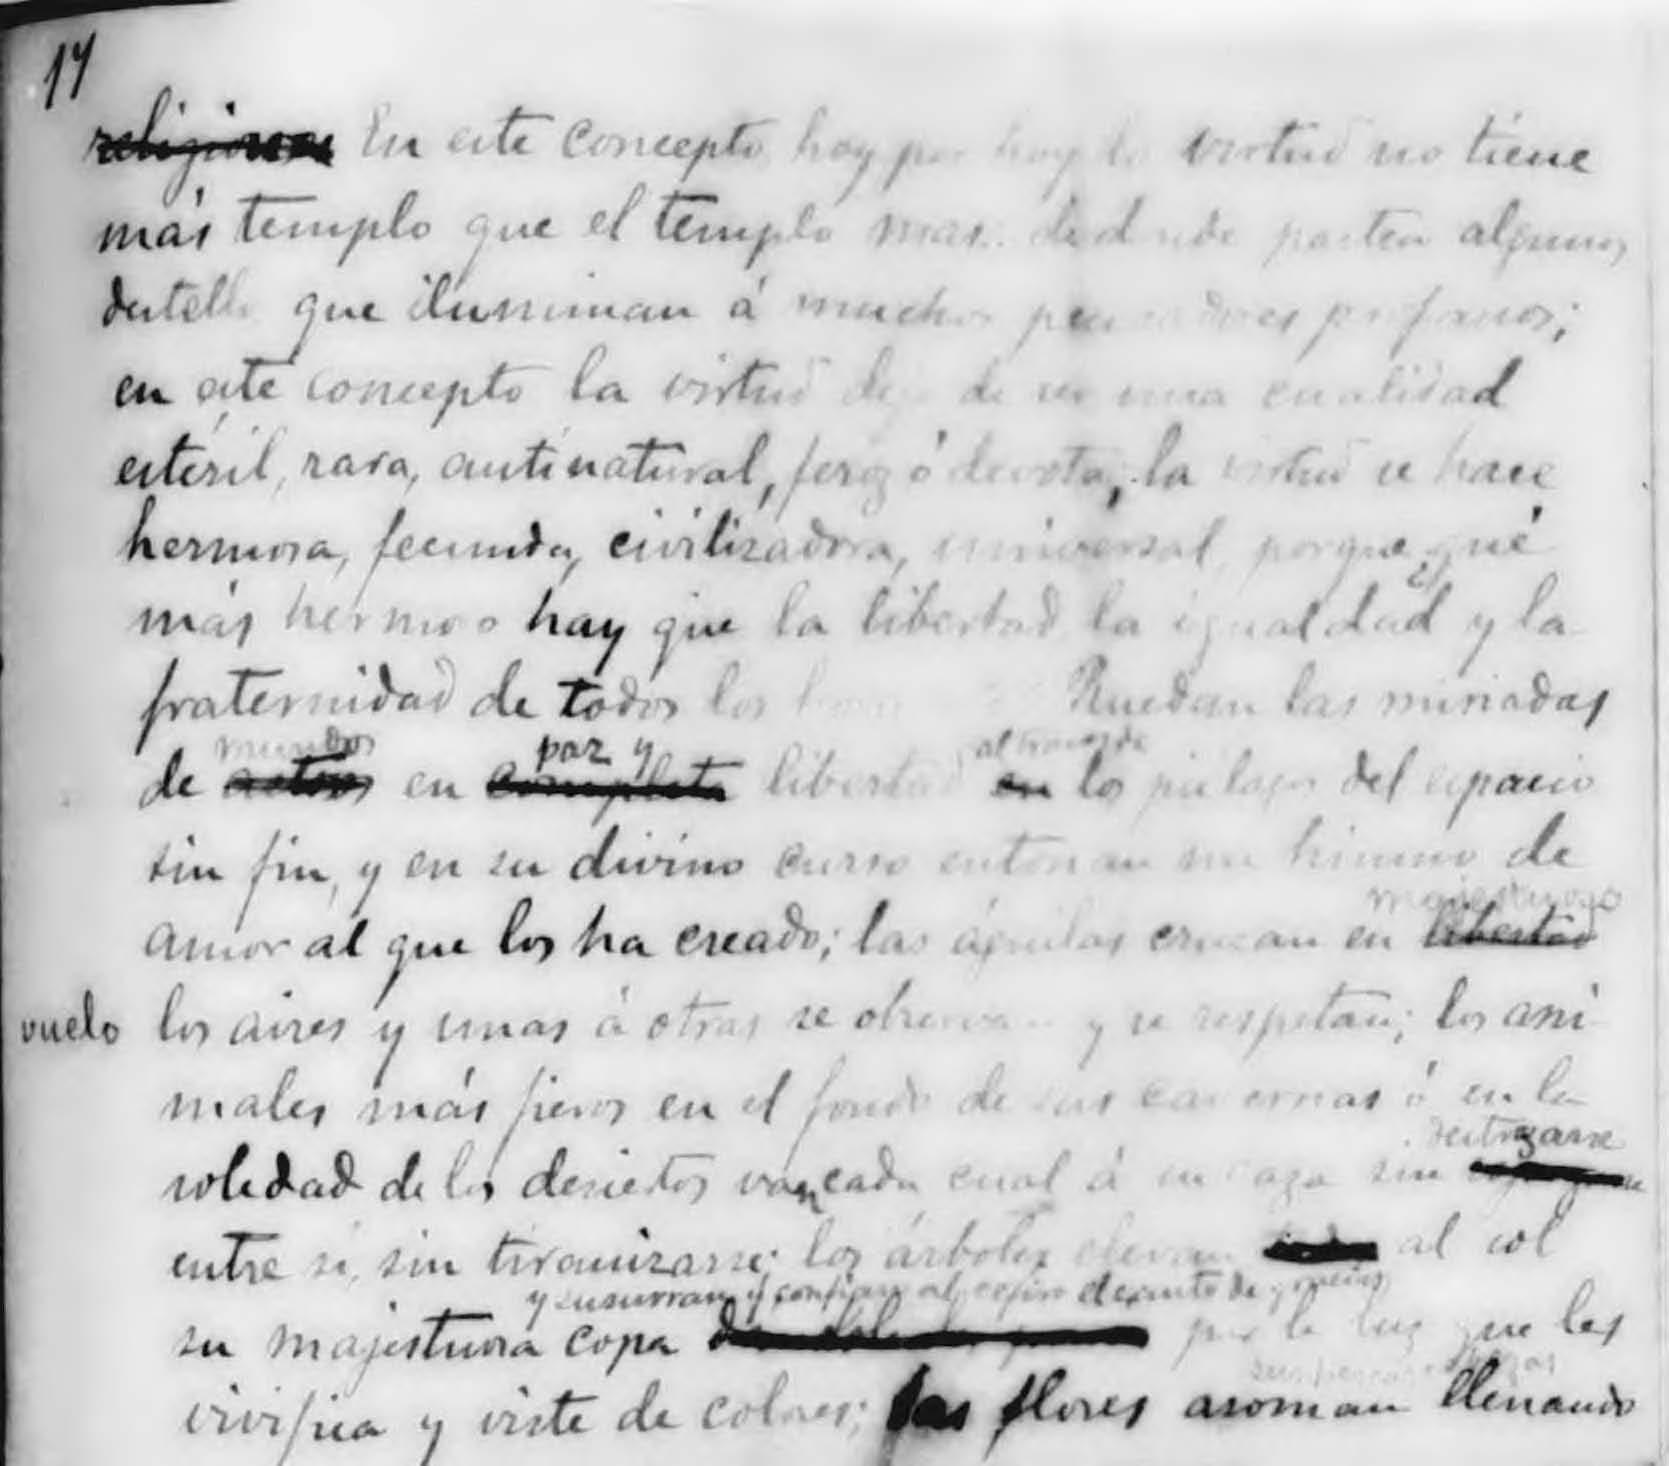 17
religiones En este concepto hoy por hoy la virtud no tiene
más templo que el templo mas.. de donde parten algunos
destellos que iluminan á muchos pensadores profanos;
en este concepto la virtud deja de ser una cualidad
estéril, rara, antinatural, feroz ó devota; la virtud se hace
hermosa, fecunda, civilizadora, universal, porque ¿qué
más hermoso hay que la libertad la igualdad y la
fraternidad de todos los Ruedan las miriadas
mundos paz y al traves de
de astros en completa libertad en los piélagos del espacio
sin fin, y en su divino curso entonan un himno de
majestuoso
amor al que los ha creado; las águilas cruzan en libertad
vuelo los aires y unas á otras se observan y se respetan; los ani-
males más fieros en el fondo de sus cavernas ó en la
destrozarse
soledad de los desiertos van cada cual á su caza sin
entre sí, sin tiranizarse; los árboles elevan al sol
y susurran y confian al cefiro el canto de gracias
su majestuosa copa por la luz que les
vivifica y viste de colores; las flores asoman llenando